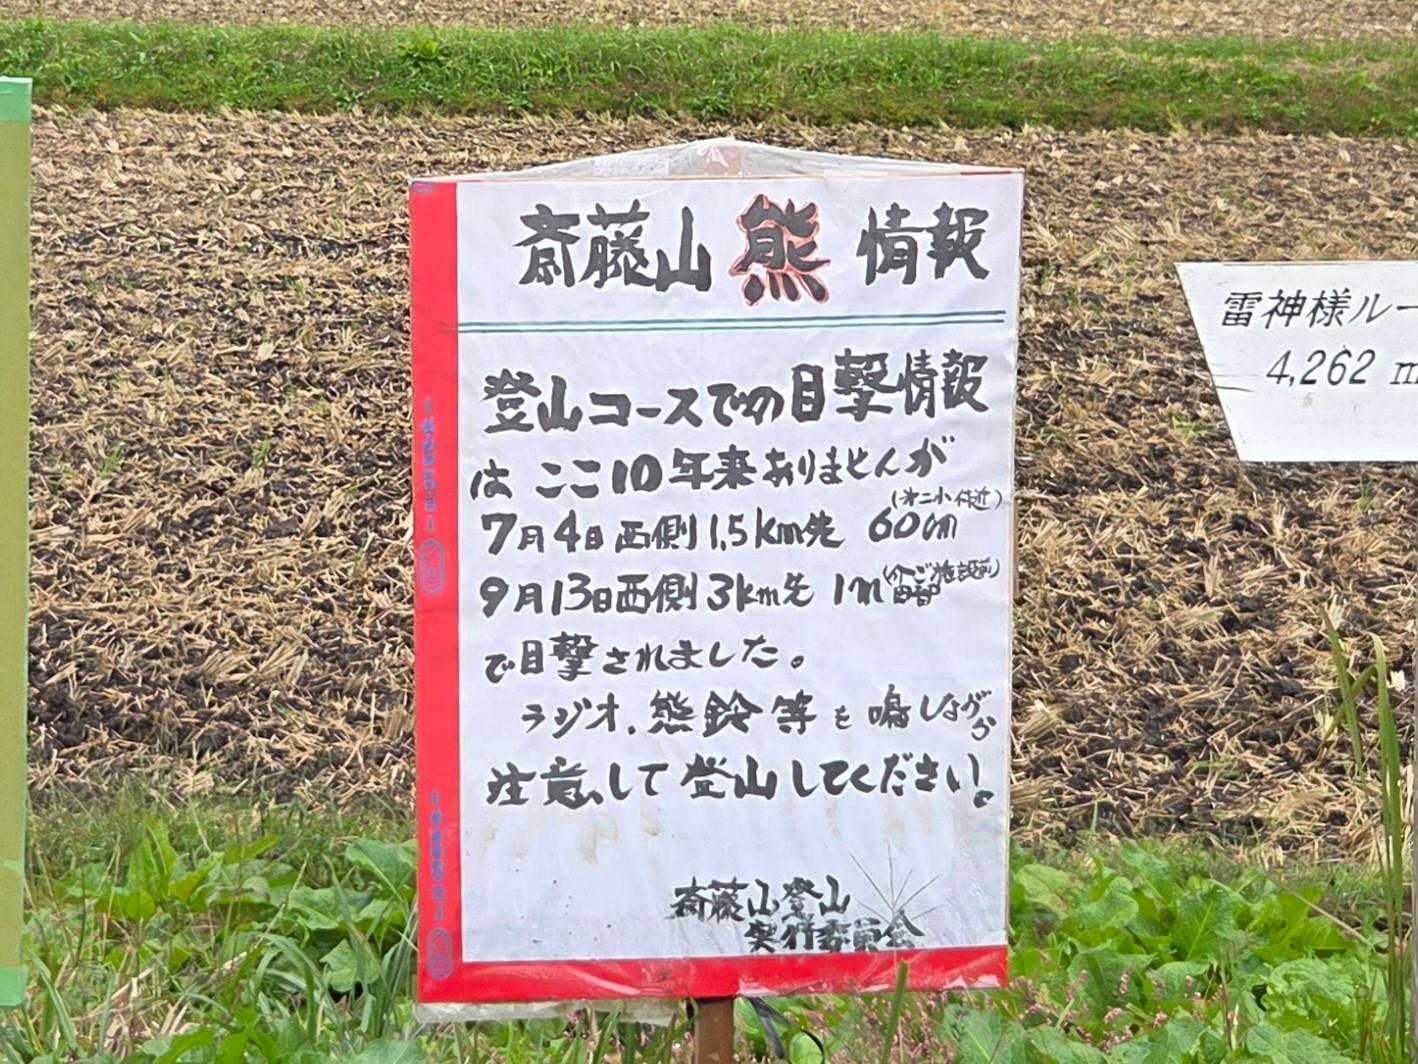 斎藤山 熊 情報
登山コースでの目撃情報
は ここ10年来ありませんが
(オ二小付近)
7月4日西側1.5km先 60cm
9月13日西側3km先 1m
で目撃されました。
ラジオ.熊鈴等を鳴しながら
注意して登山してください。
斎藤山登山
実行委員会
雷神様ルー
4,262 m